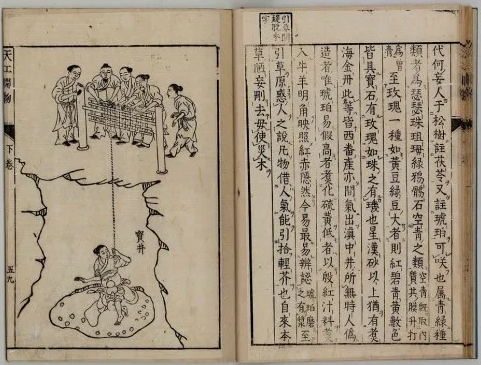 代何妄人于松樹註茯苓又註琥珀可笑也属青綠種
類者為瑟瑟珠珇母綠鴉鶻石空青之類空青既取內質其膜升打
為曾青至玫瑰一種如黃豆綠豆大者則紅碧青黃數色
皆具寶石有玫瑰如珠之有璣也星漢砂以上猶有煮
海金丹此等皆西番產亦間氣出滇中井所無時人偽
造者唯琥珀易假高者煮化硫黃低者以殷紅汁料煮
入牛羊明角映照紅赤隱然今易最易辨認琥珀磨之有漿至
引草原惑人之說凡物借人氣能引拾輕芥也自來本
草陋妄刪去毋使災木
寶井
天工開物
下卷
五九